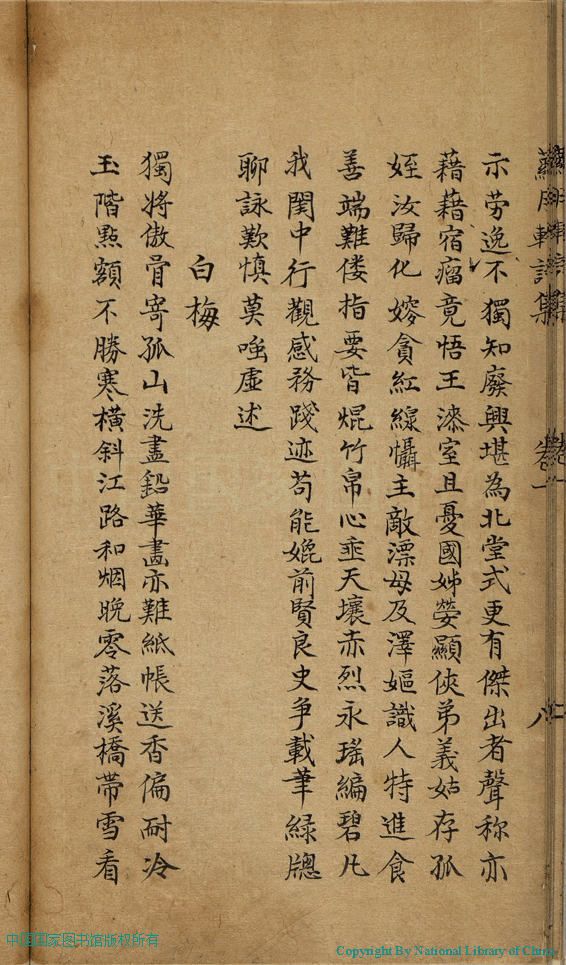 示劳逸不獨知廢興堪為北堂式更有傑出者聲称亦
藉藉宿瘤竟悟王漆室且憂國姊嫈顯俠弟義姑存孤
姪汝歸化嫪貪紅線懾主敵漂母及澤嫗識人特進食
善端難偻指要皆焜竹帛心垂天壤赤烈永瑤編碧凡
我閨中行觀感務踐迹苟能媲前賢良史争載筆緑牕
聊詠歎慎莫嗤虚述
白梅
獨將傲骨寄孤山洗盡鉛華畫亦難紙帳送香偏耐冷
玉階點額不勝寒横斜江路和烟晚零落溪橋帶雪看
中国国家图书馆版权所有
Copyright By National Library of China